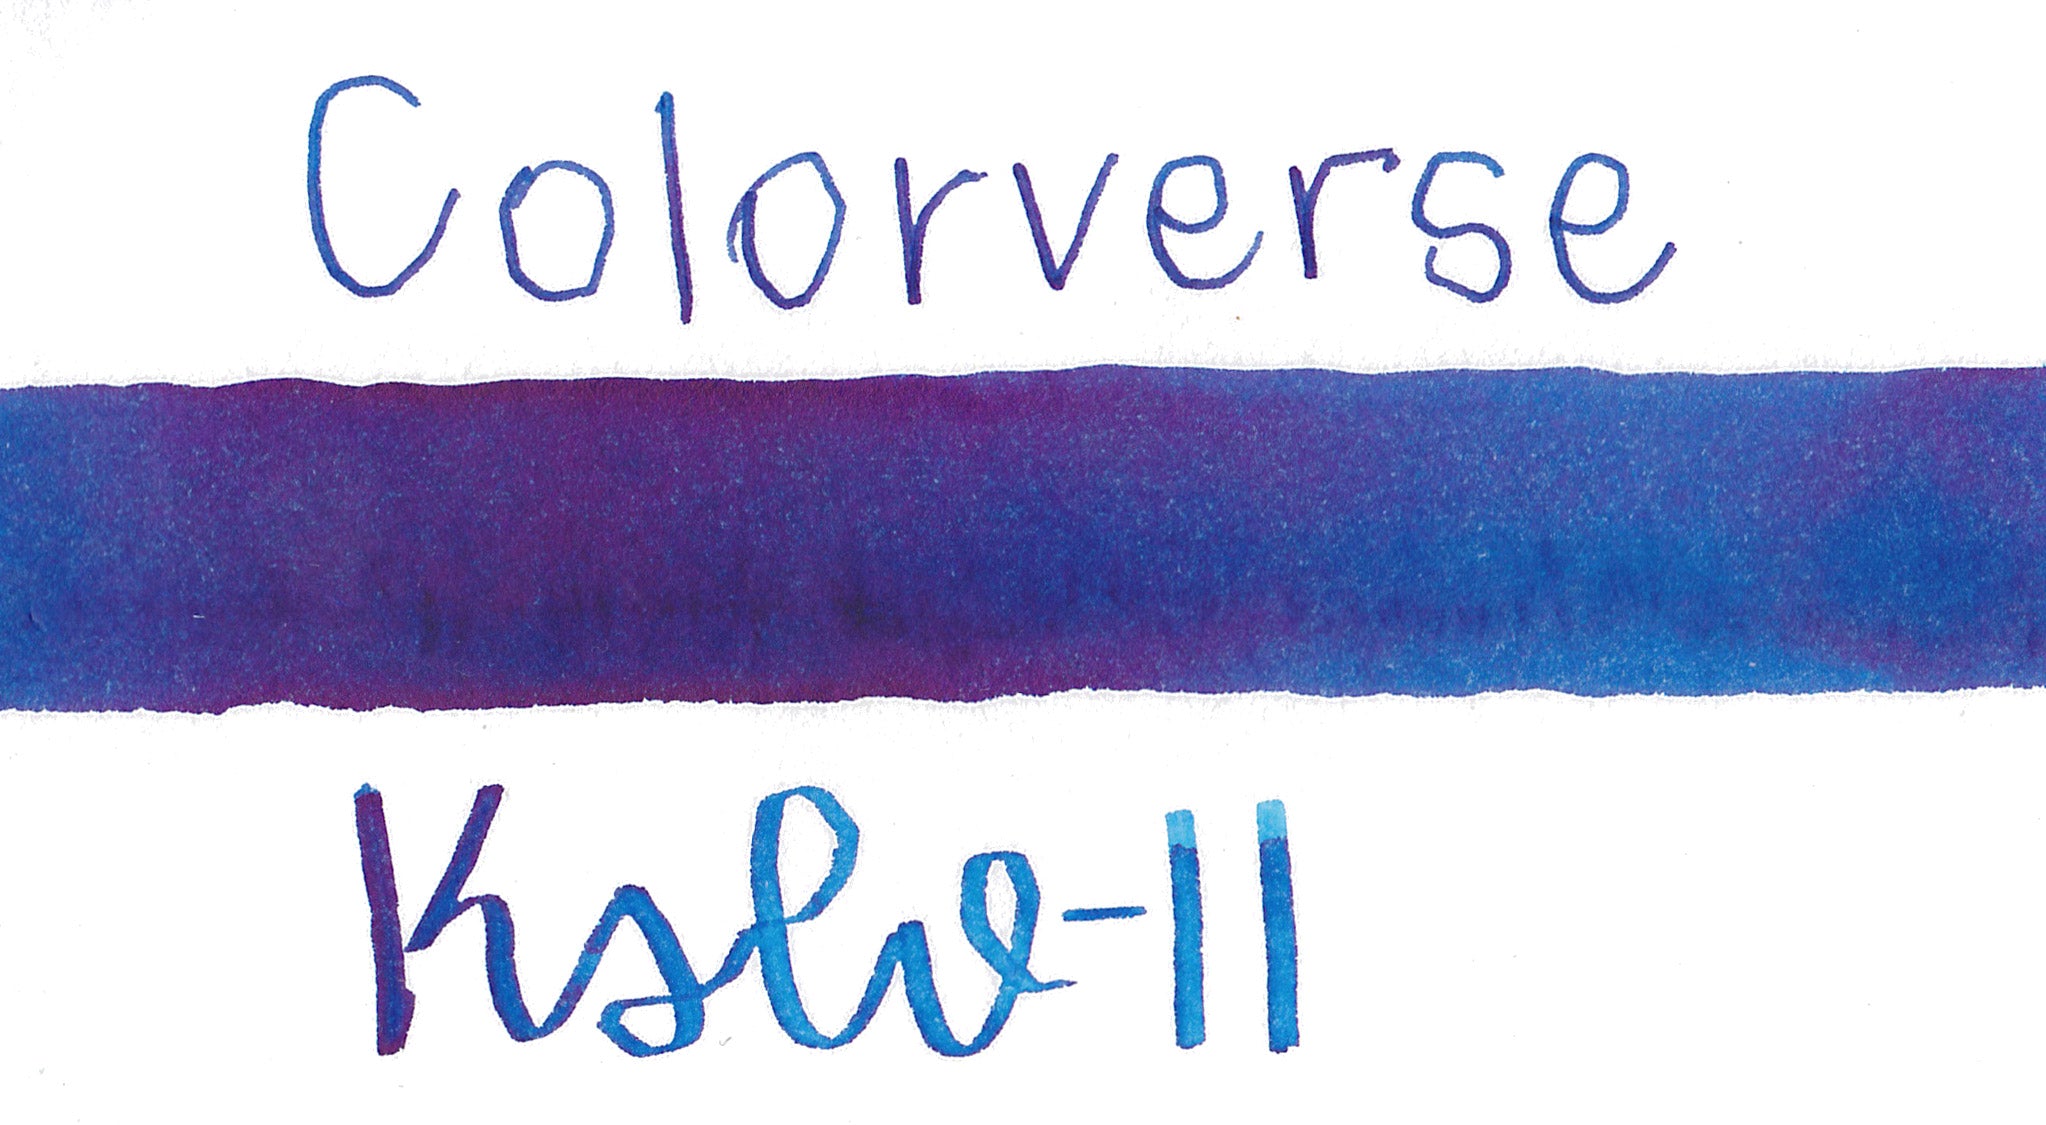 Colorverse
Kslv-II